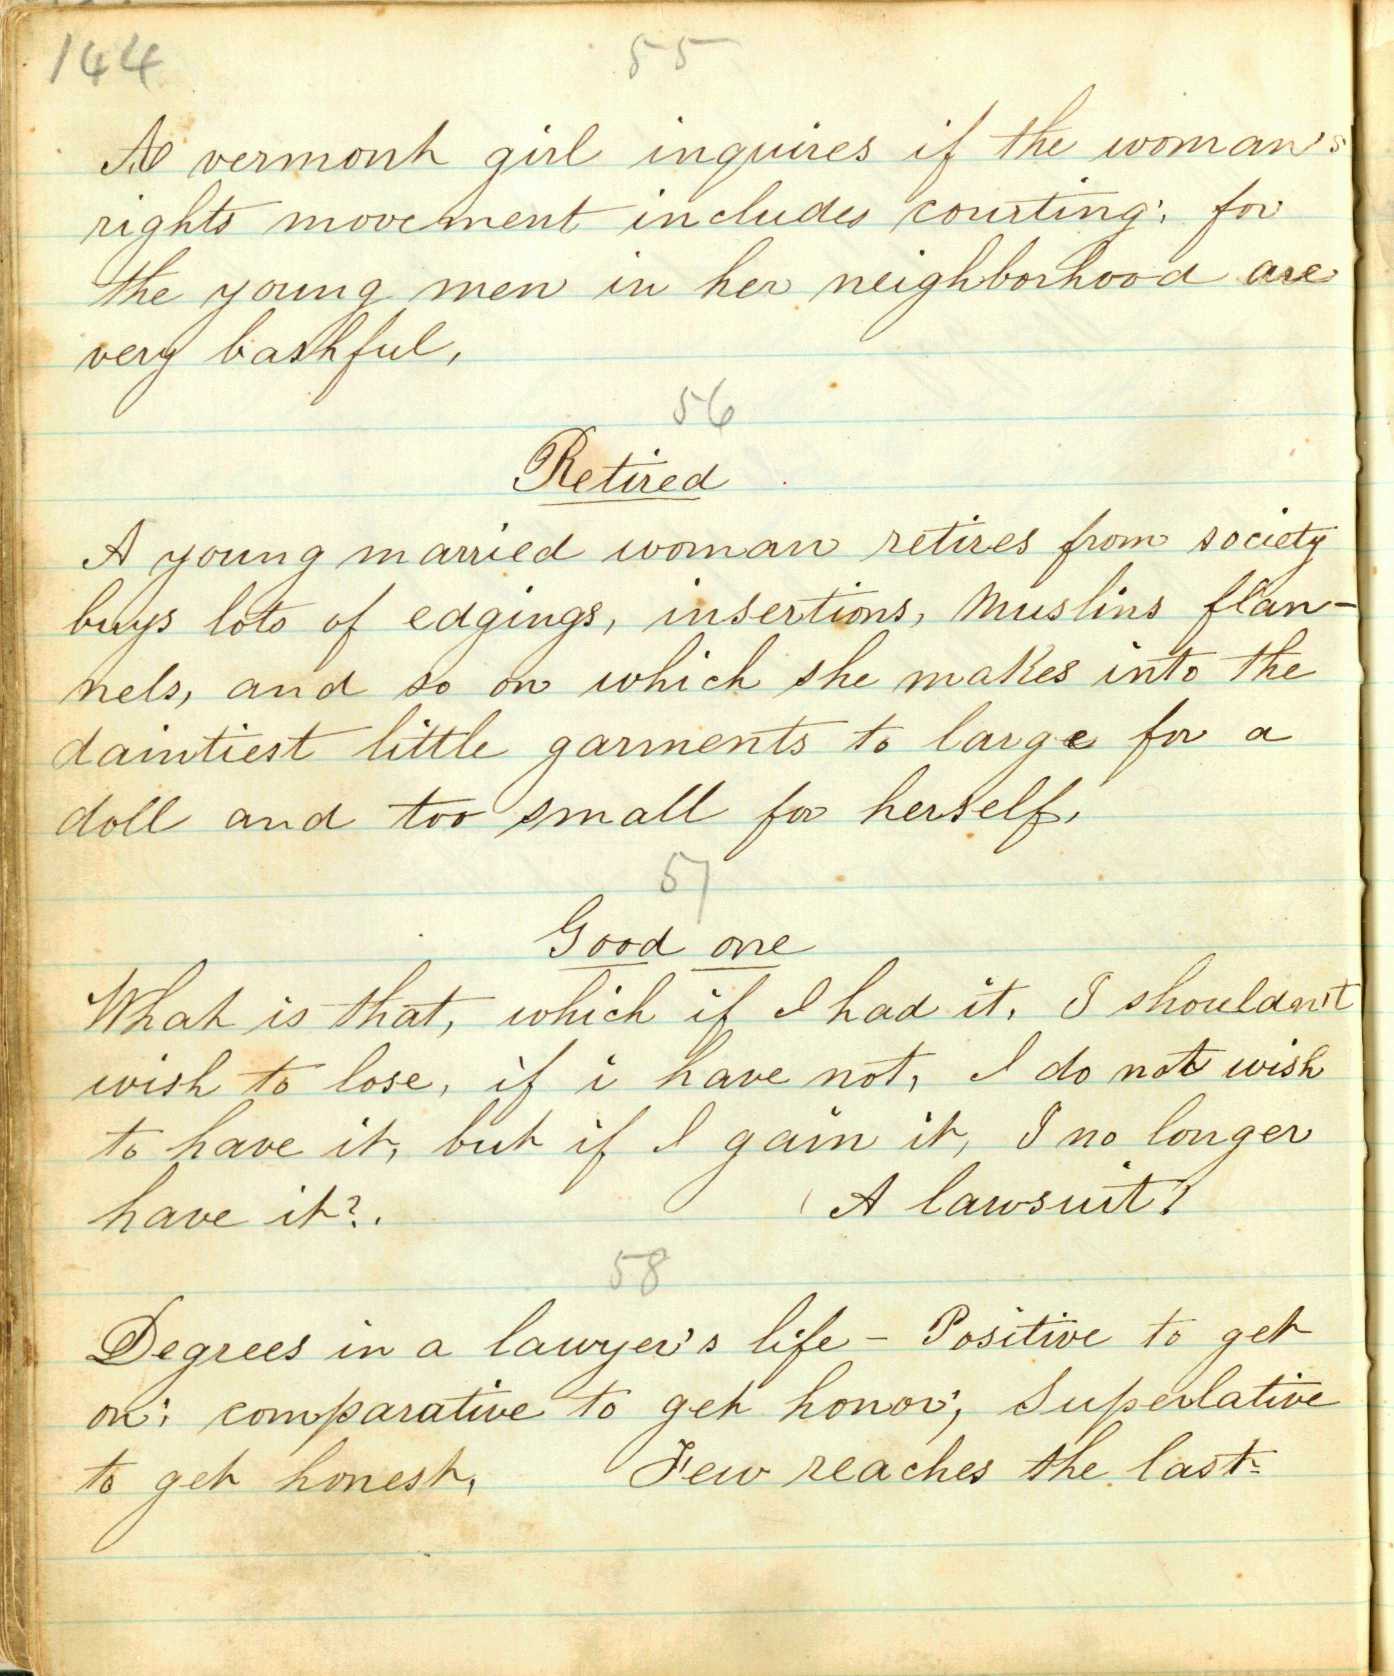 144
55
A vermont girl inquires if the woman's
rights movement includes courting; for
the young men in her neighborhood are
very bashful,
56
Retired
A young married woman retires from society
buys lots of edgings, insertions, Muslins flan-
nels, and so on which she makes into the
daintiest little garments to large for a
doll and too small for herself,
57
Good one
What is that, which if I had it, I shouldn't
wish to lose, if i have not, I do not wish
to have it, but if I gain it, I no longer
have it?.                    (A lawsuit)
58
Degrees in a lawyer's life - Positive to get
on; comparative to get honor; Superlative
to get honest,        Few reaches the last.